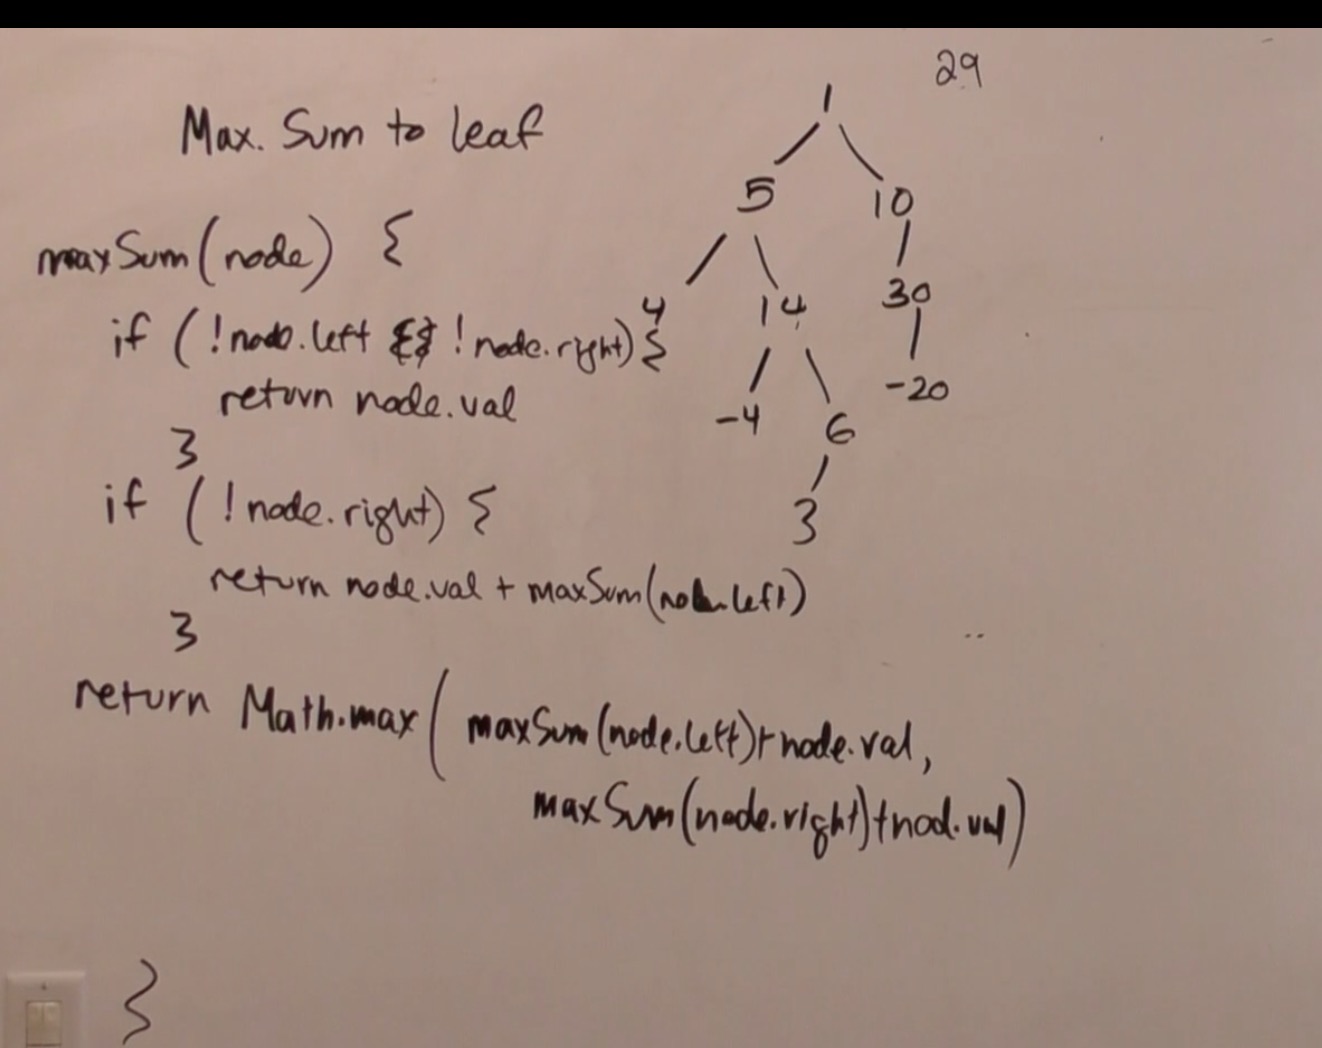 29
Max. Sum to leaf
1
5 10
maxSum(node) {
4 14 30
if (!node.left && !node.right) {
-4 6 -20
return node.val
}
3
if (!node.right) {
return node.val + maxSum(node.left)
}
return Math.max( maxSum(node.left)+node.val,
maxSum(node.right)+nod.val)
}